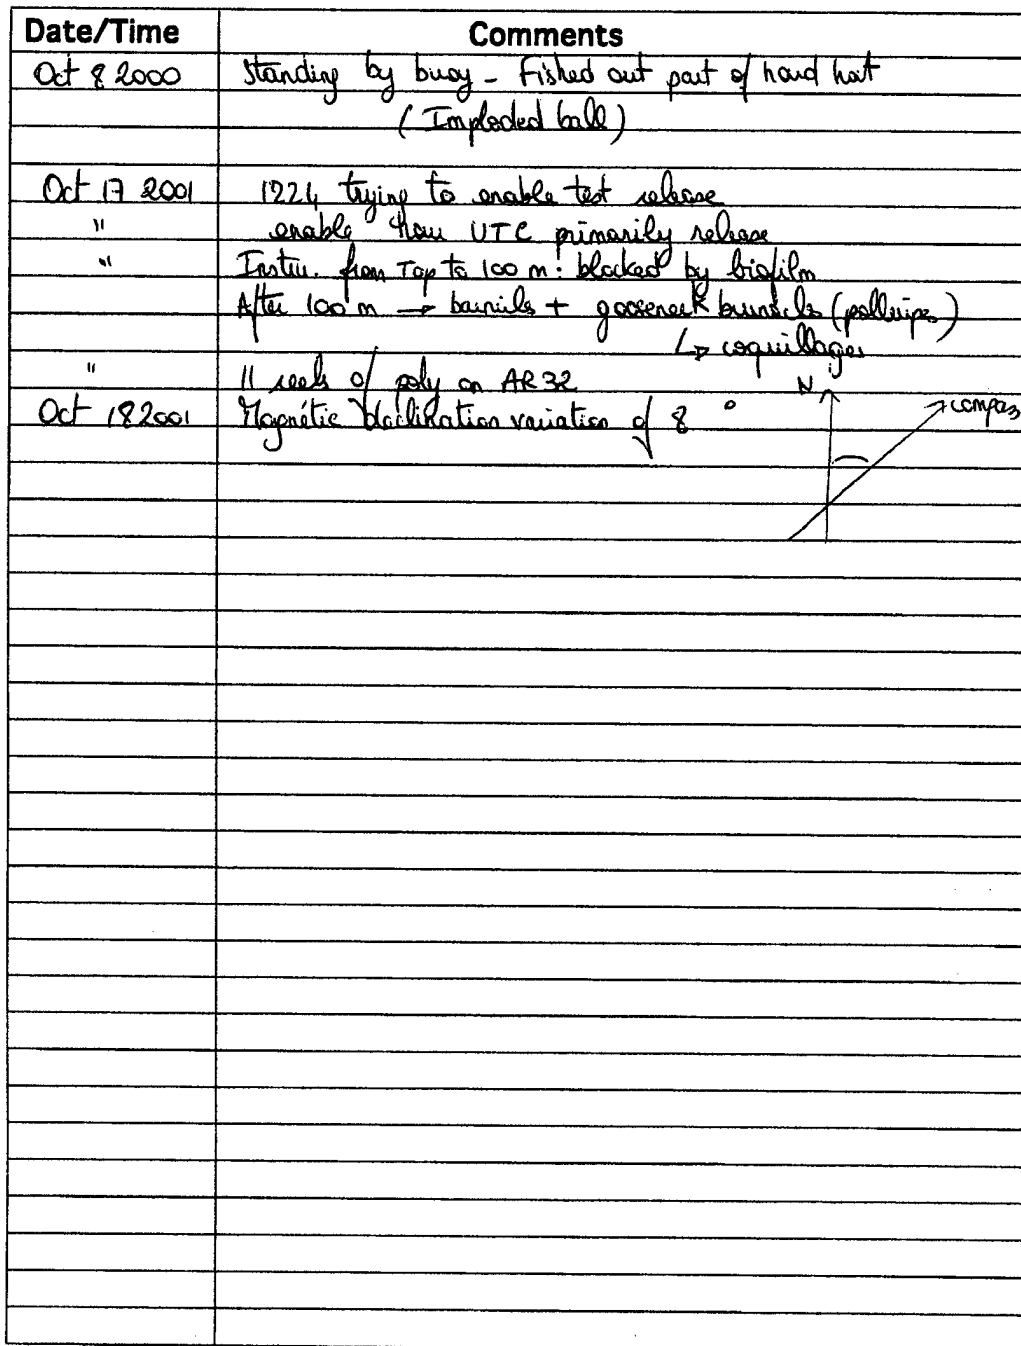 Date/Time Comments
Oct 8 2000 Standing by buoy - Fished out part of hard hat
(Imploded ball)
Oct 17 2001 1224 trying to enable test release
" enable UTC primarily release
" Instru. from Top to 100 m: blocked by biofilm
After 100 m → barnicls + gooseneck barnicls (pollicipes)
↳ coquillages
" 11 reels of poly on AR32
N
compas
Oct 18 2001 Magnétic declination variation of 8 °